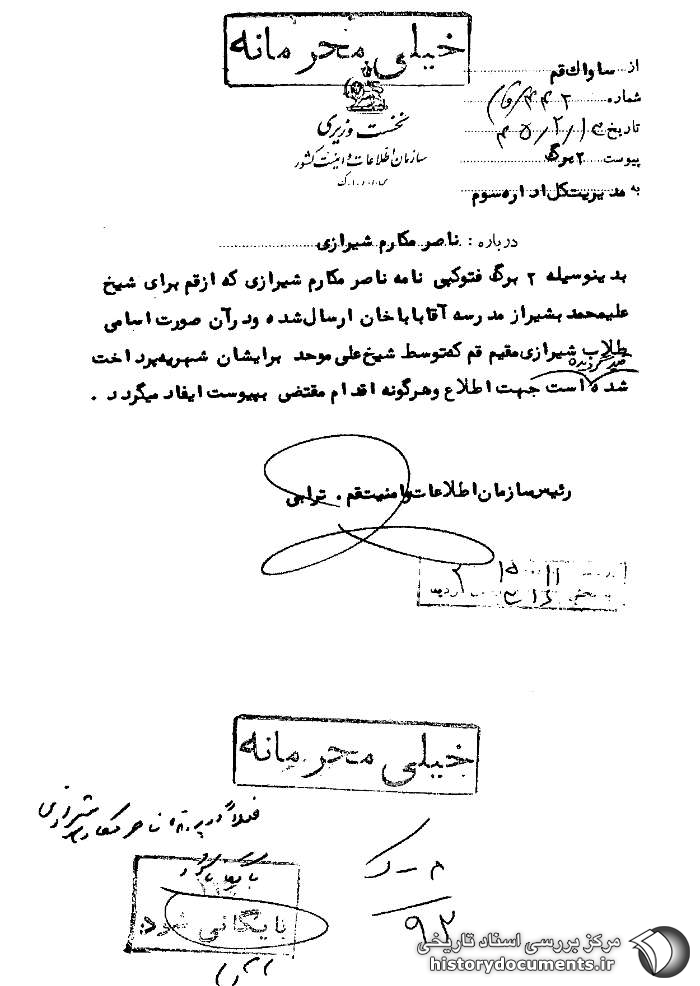 خیلی محرمانه
از ساواک قم
شماره
تاریخ
پیوست ۲ برگ
نخست وزیری
سازمان اطلاعات و امنیت کشور
س.ا.و.ا.ک
به مدیریت کل اداره سوم
درباره : ناصر مکارم شیرازی
بدینوسیله ۲ برگ فتوکپی نامه ناصر مکارم شیرازی که از قم برای شیخ
علیمحمد بشیراز مدرسه آقاباباخان ارسال شده و در آن صورت اسامی
طلاب شیرازی مقیم قم که توسط شیخ علی موحد برایشان شهریه پرداخت
شده است جهت اطلاع و هرگونه اقدام مقتضی بپیوست ایفاد میگردد .
رئیس سازمان اطلاعات و امنیت قم . ترابی
خیلی محرمانه
فعلا در پرونده ناصر مکارم شیرازی
بایگانی شود
۹۲
مرکز بررسی اسناد تاریخی
historydocuments.ir